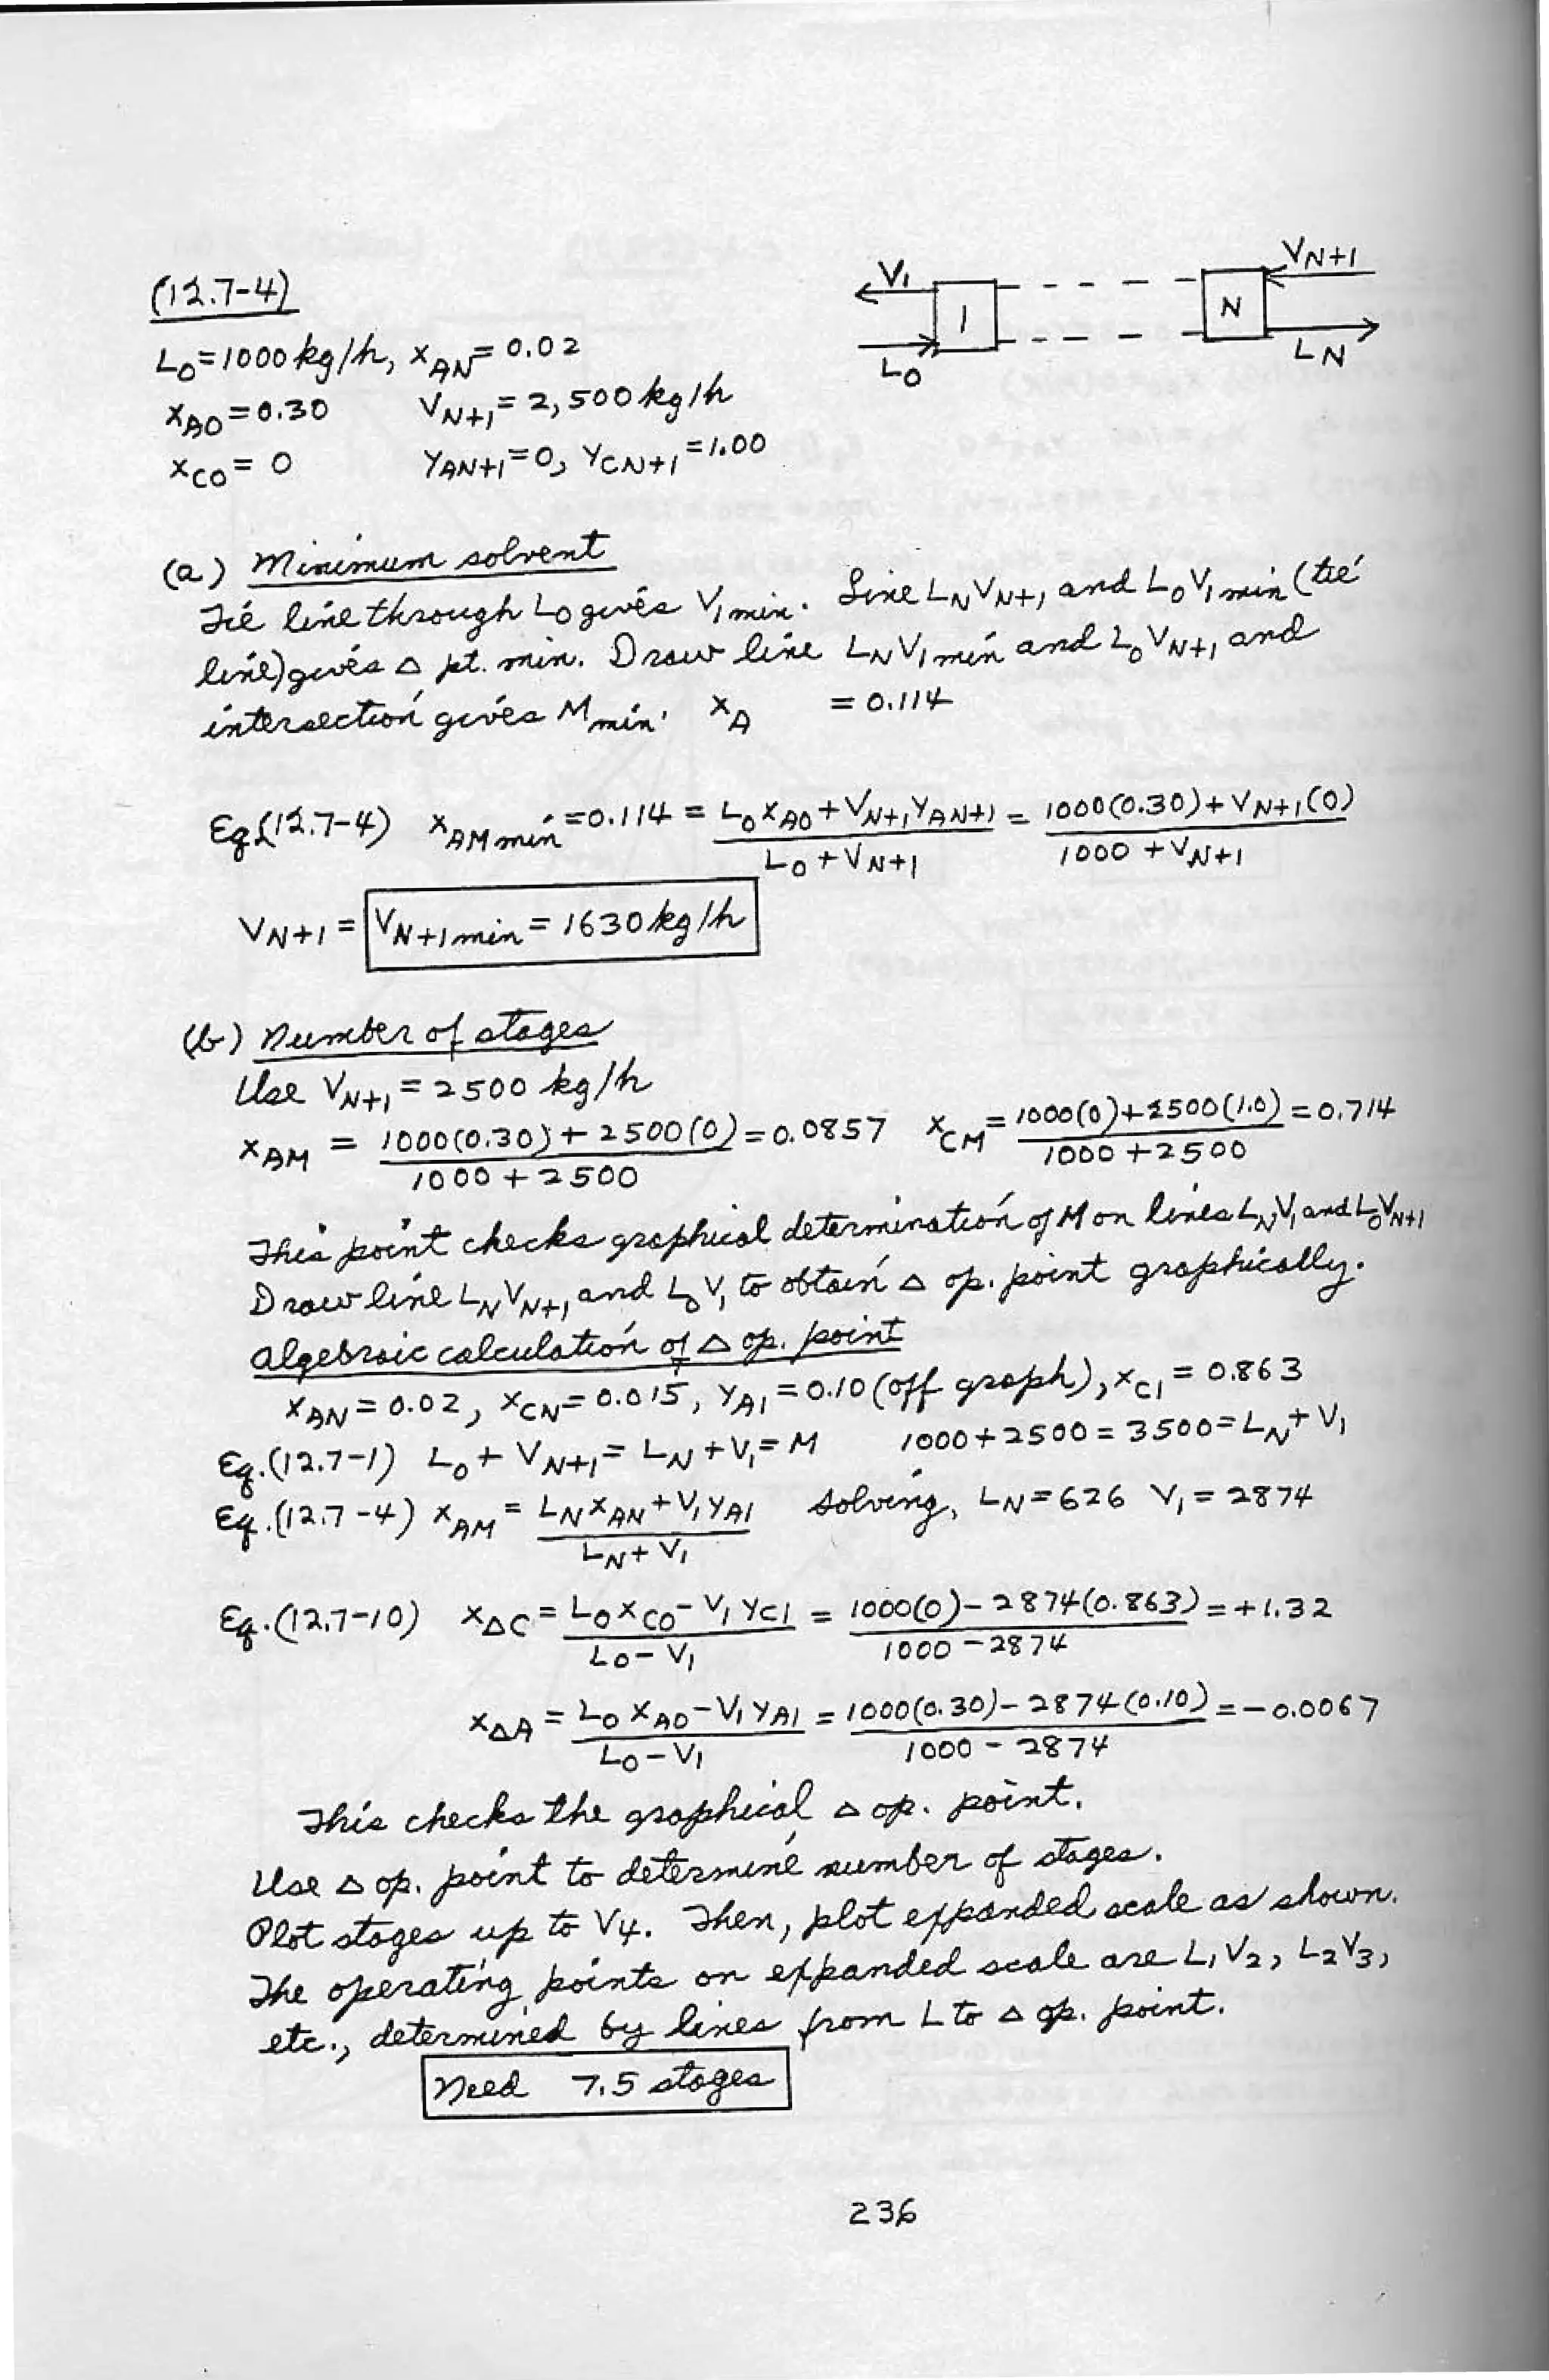 (12.7-4)
V1 1 N VN+1
L0 LN
L0=1000 kg/h, xAN=0.02
xA0=0.30 VN+1=2,500 kg/h
xC0=0 yAN+1=0, yCN+1=1.00
(a) Minimum solvent
Tie line through L0 gives V1min. Line LNVN+1 and L0V1min (tie
line) gives Δ pt. min. Draw line LNV1min and L0VN+1 and
intersection gives Mmin. xA =0.114
Eq.(12.7-4) xAMmin=0.114 = (L0xA0+VN+1yAN+1)/(L0+VN+1) = (1000(0.30)+VN+1(0))/(1000+VN+1)
VN+1 = VN+1min = 1630 kg/h
(b) Number of stages
Use VN+1 = 2500 kg/h
xAM = (1000(0.30)+2500(0))/(1000+2500) = 0.0857 xCM = (1000(0)+2500(1.0))/(1000+2500) = 0.714
This point checks graphical determination of M on lines LNV1 and L0VN+1
Draw line LNVN+1 and L0V1 to obtain Δ op. point graphically.
Algebraic calculation of Δ op. point
xAN=0.02, xCN=0.015, yA1=0.10 (off graph), xC1=0.863
Eq.(12.7-1) L0+VN+1=LN+V1=M 1000+2500=3500=LN+V1
Eq.(12.7-4) xAM = (LNxAN+V1yA1)/(LN+V1) Solving, LN=626 V1=2874
Eq.(12.7-10) xΔC = (L0xC0-V1yC1)/(L0-V1) = (1000(0)-2874(0.863))/(1000-2874) = +1.32
xΔA = (L0xA0-V1yA1)/(L0-V1) = (1000(0.30)-2874(0.10))/(1000-2874) = -0.0067
This checks the graphical Δ op. point.
Use Δ op. point to determine number of stages.
Plot stages up to V4. Then, plot expanded scale as shown.
The operating points on expanded scale are L1V2, L2V3,
etc., determined by lines from L to Δ op. point.
Need 7.5 stages
236